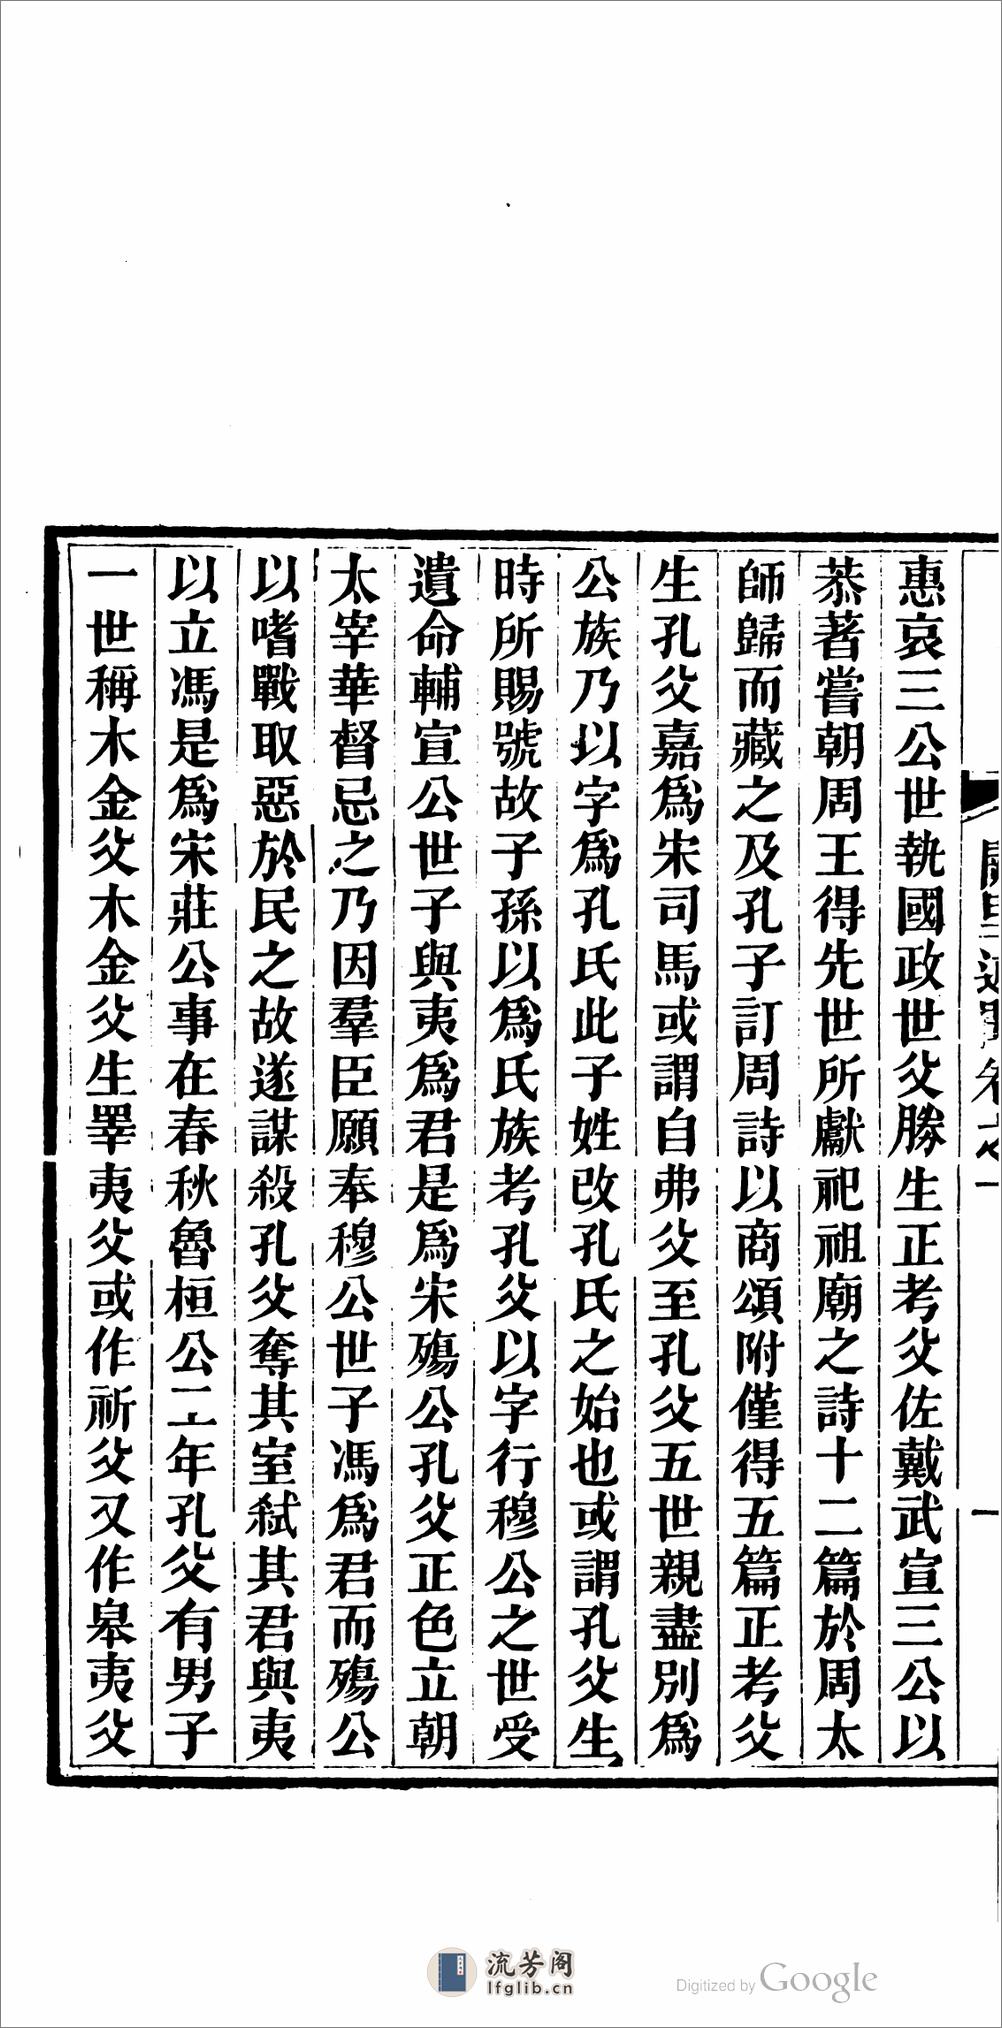 惠哀三公世執國政世父勝生正考父佐戴武宣三公以
恭著嘗朝周王得先世所獻祀祖廟之詩十二篇於周太
師歸而藏之及孔子訂周詩以商頌附僅得五篇正考父
生孔父嘉爲宋司馬或謂自弗父至孔父五世親盡別爲
公族乃以字爲孔氏此子姓改孔氏之始也或謂孔父生
時所賜號故子孫以爲氏族考孔父以字行穆公之世受
遺命輔宣公世子與夷爲君是爲宋殤公孔父正色立朝
太宰華督忌之乃因羣臣願奉穆公世子馮爲君而殤公
以嗜戰取惡於民之故遂謀殺孔父奪其室弑其君與夷
以立馮是爲宋莊公事在春秋魯桓公二年孔父有男子
一世稱木金父木金父生睪夷父或作祈父又作皋夷父
流芳阁
lfglib.cn
Digitized by Google